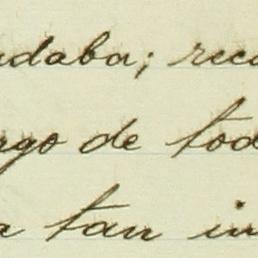 ndaba; reco
rgo de tod
a tan in